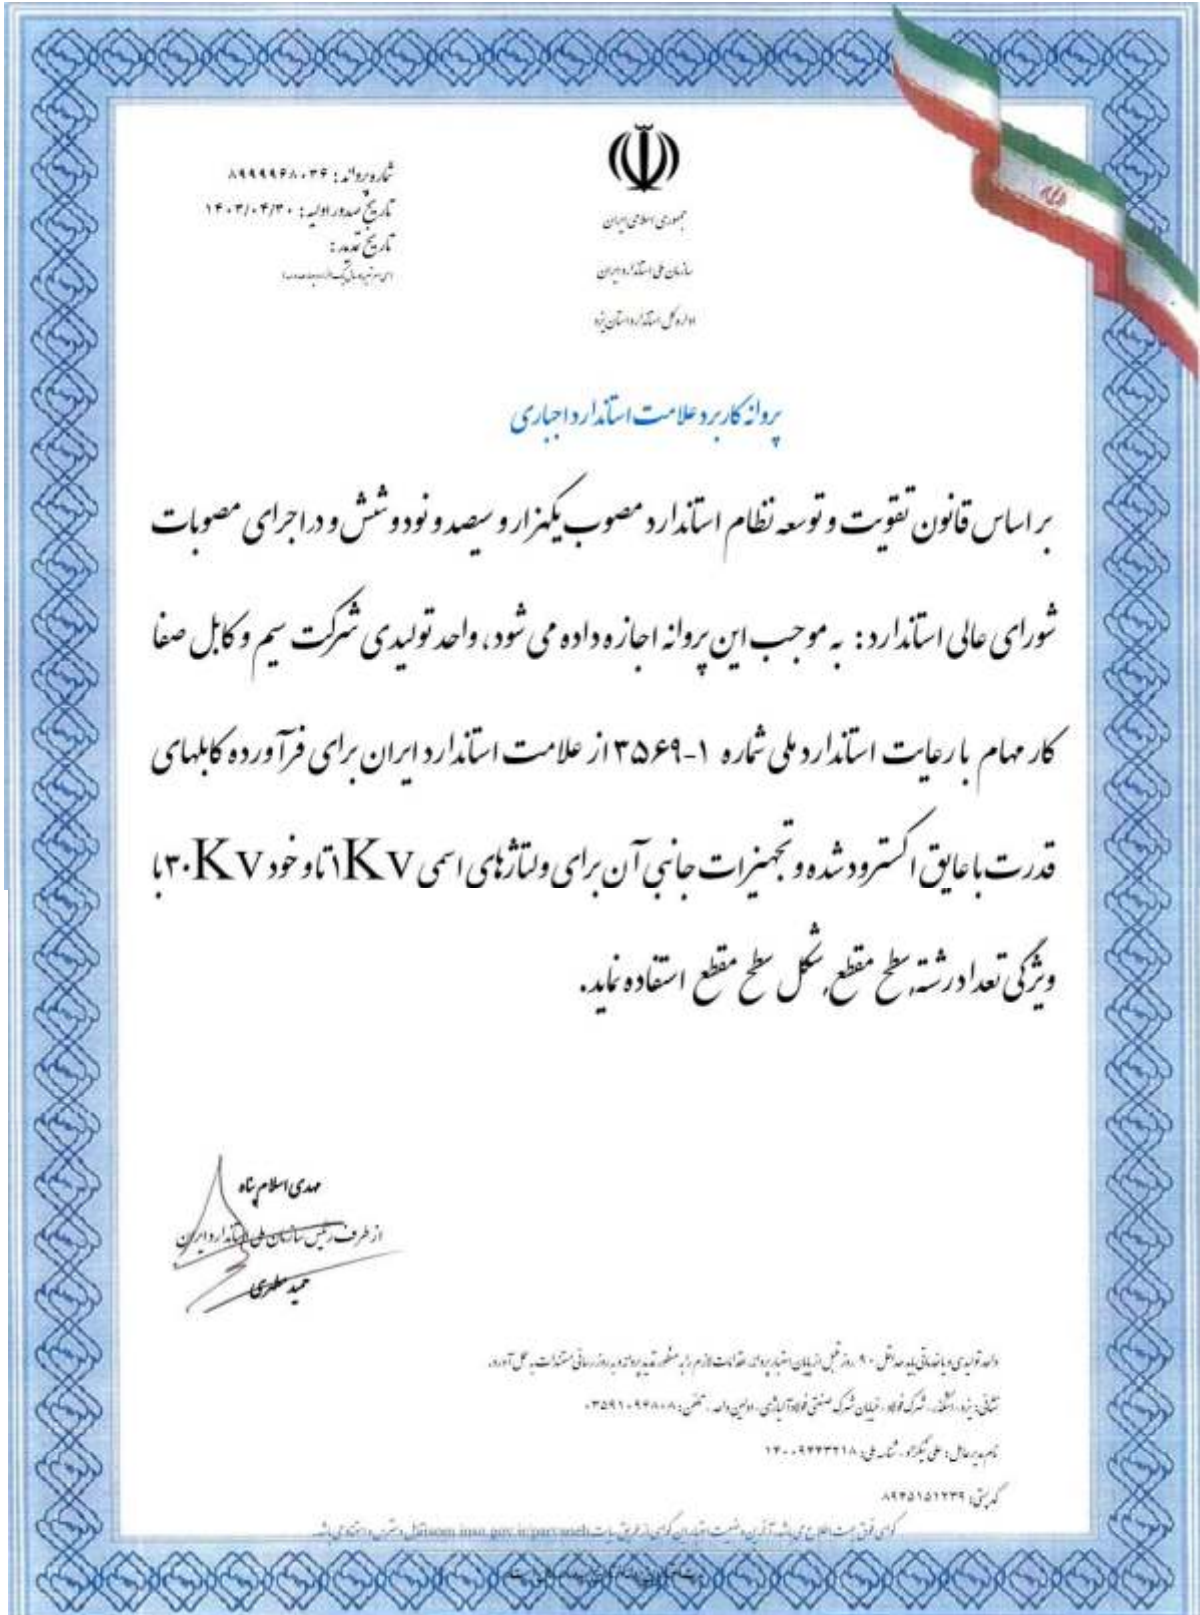 جمهوری اسلامی ایران
سازمان ملی استاندارد ایران
اداره کل استاندارد استان یزد
شماره پروانه : ۸۹۹۹۹۶۸۰۳۶
تاریخ صدور اولیه : ۱۴۰۳/۰۴/۳۰
تاریخ تمدید :
پروانه کاربرد علامت استاندارد اجباری
بر اساس قانون تقویت و توسعه نظام استاندارد مصوب یکهزار و سیصد و نود و شش و در اجرای مصوبات
شورای عالی استاندارد : به موجب این پروانه اجازه داده می شود، واحد تولیدی شرکت سیم و کابل صفا
کار مهام با رعایت استاندارد ملی شماره ۱-۳۵۶۹ از علامت استاندارد ایران برای فرآورده کابلهای
قدرت با عایق اکسترود شده و تجهیزات جانبی آن برای ولتاژهای اسمی ۱Kv تا و خود ۳۰Kv با
ویژگی تعداد رشته, سطح مقطع, شکل سطح مقطع استفاده نماید.
مهدی اسلام پناه
از طرف رئیس سازمان ملی استاندارد ایران
حمید مطهری
واحد تولیدی و یا خدماتی باید حداقل ۹۰ روز قبل از پایان اعتبار پروانه، اقدامات لازم را به منظور تمدید پروانه و به روز رسانی مستندات به عمل آورد.
نشانی: یزد، اشکذر، شهرک فولاد، خیابان شهرک صنعتی فولاد آلیاژی، اولین واحد، تلفن: ۰۳۵۹۱۰۹۴۸۰۸
نام مدیرعامل: علی نیکزاد، شناسه ملی: ۱۴۰۰۹۴۴۳۲۱۸
کد پستی: ۸۹۴۵۱۵۱۲۳۹